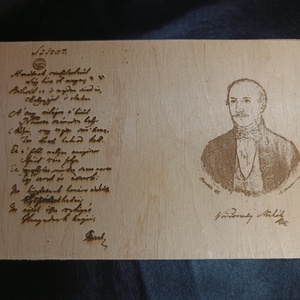 Szózat.
Hazádnak rendületlenűl
Légy híve oh magyar;
Bölcsőd ez s majdan sírod is
Melly ápol s eltakar
A' nagy világon e' kívűl
Nincsen számodra hely
Áldjon vagy verjen sors keze
Itt élned halnod kell.
Ez a' föld mellyen annyiszor
Apáid vére folyt
Ez mellyhez minden szent nevet
Egy ezredév csatolt.
Itt küzdtenek honért a
hadai
Itt törtek össze rabigát
Hunyadnak karjai
Vörösmarty Mihály